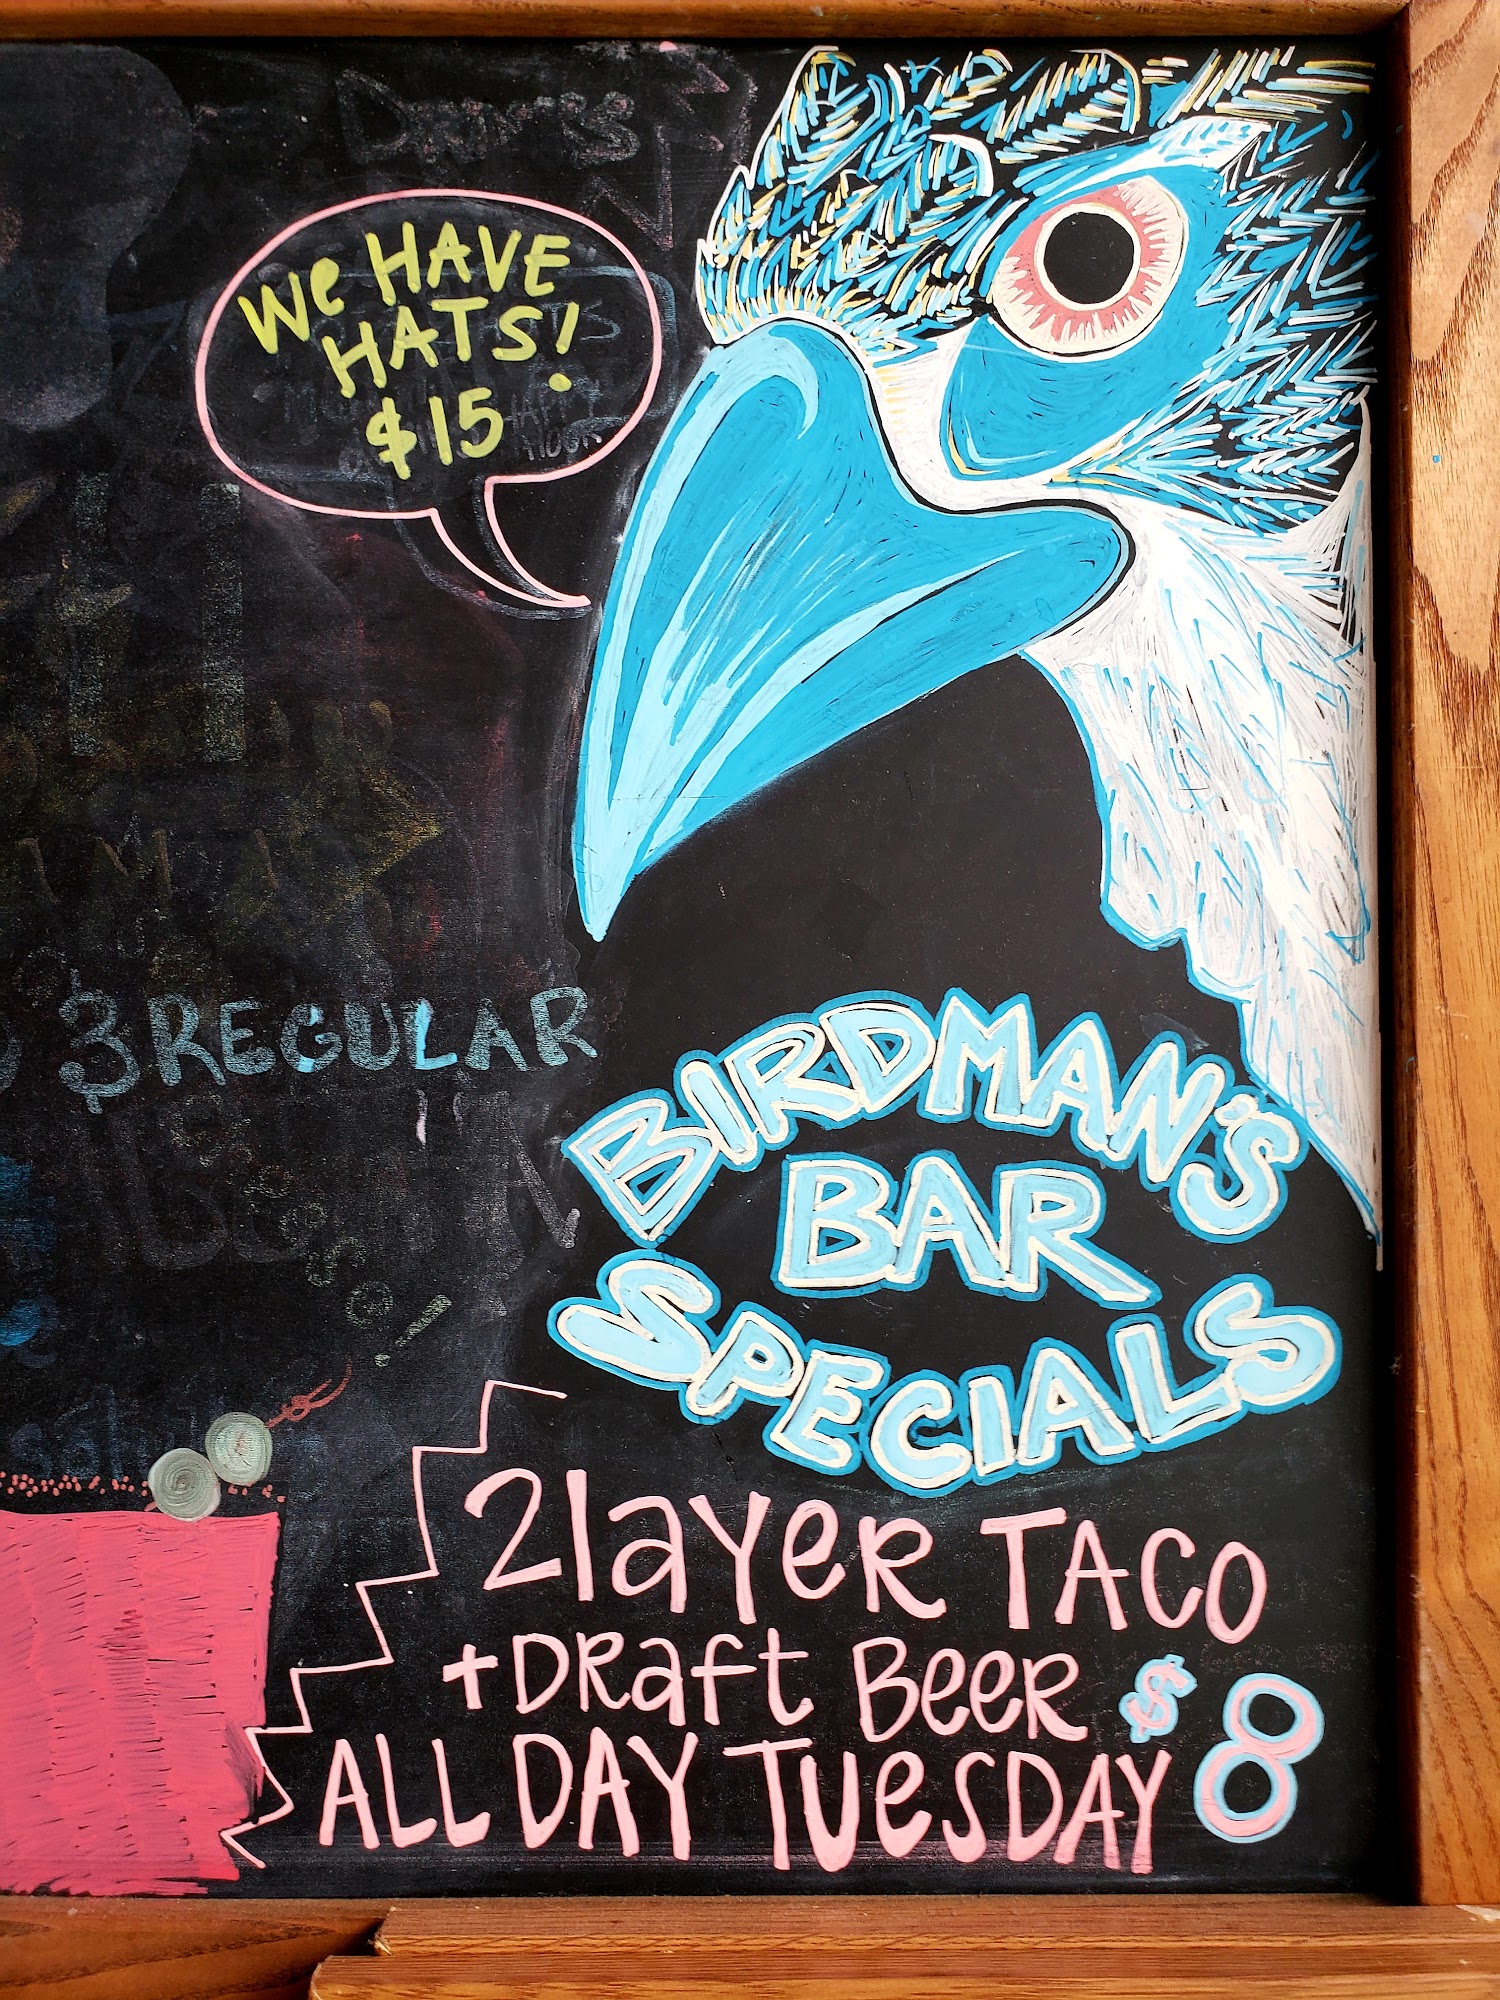 We HAVE
HATS!
$15
3 REGULAR
BIRDMAN'S
BAR
SPECIALS
2 layer TACO
+ Draft Beer $8
ALL DAY TUESDAY